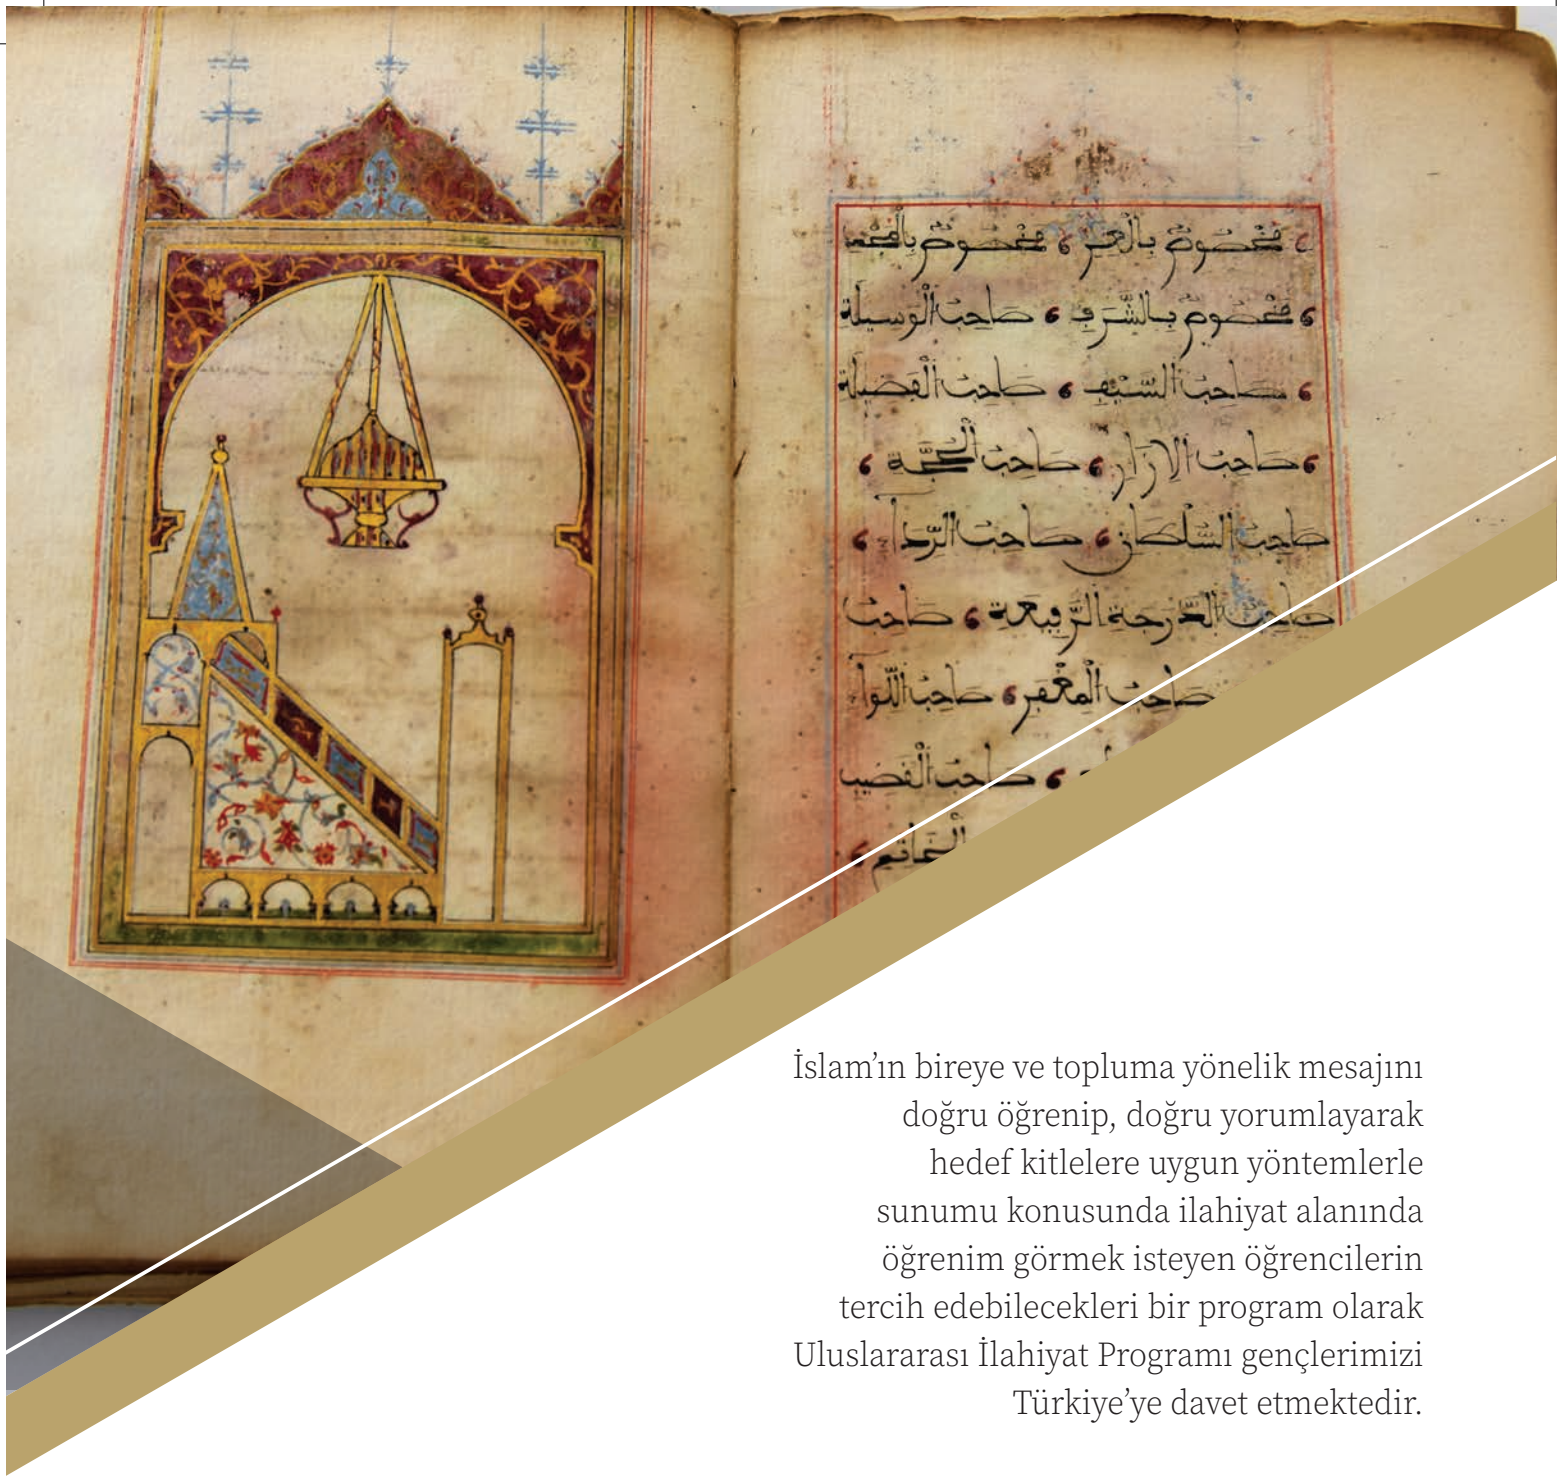 مَخْصُوصٌ بِالْعِزِّ مَخْصُوصٌ بِالْمَجْدِ
مَخْصُوصٌ بِالشَّرَفِ صَاحِبُ الْوَسِيلَةِ
صَاحِبُ السَّيْفِ صَاحِبُ الْفَضِيلَةِ
صَاحِبُ الْإِزَارِ صَاحِبُ الْحُجَّةِ
صَاحِبُ السُّلْطَانِ صَاحِبُ الرِّدَاءِ
صَاحِبُ الدَّرَجَةِ الرَّفِيعَةِ صَاحِبُ
صَاحِبُ الْمِغْفَرِ صَاحِبُ اللِّوَاءِ
صَاحِبُ الْقَضِيبِ
الْخَاتَمِ
İslam’ın bireye ve topluma yönelik mesajını
doğru öğrenip, doğru yorumlayarak
hedef kitlelere uygun yöntemlerle
sunumu konusunda ilahiyat alanında
öğrenim görmek isteyen öğrencilerin
tercih edebilecekleri bir program olarak
Uluslararası İlahiyat Programı gençlerimizi
Türkiye’ye davet etmektedir.